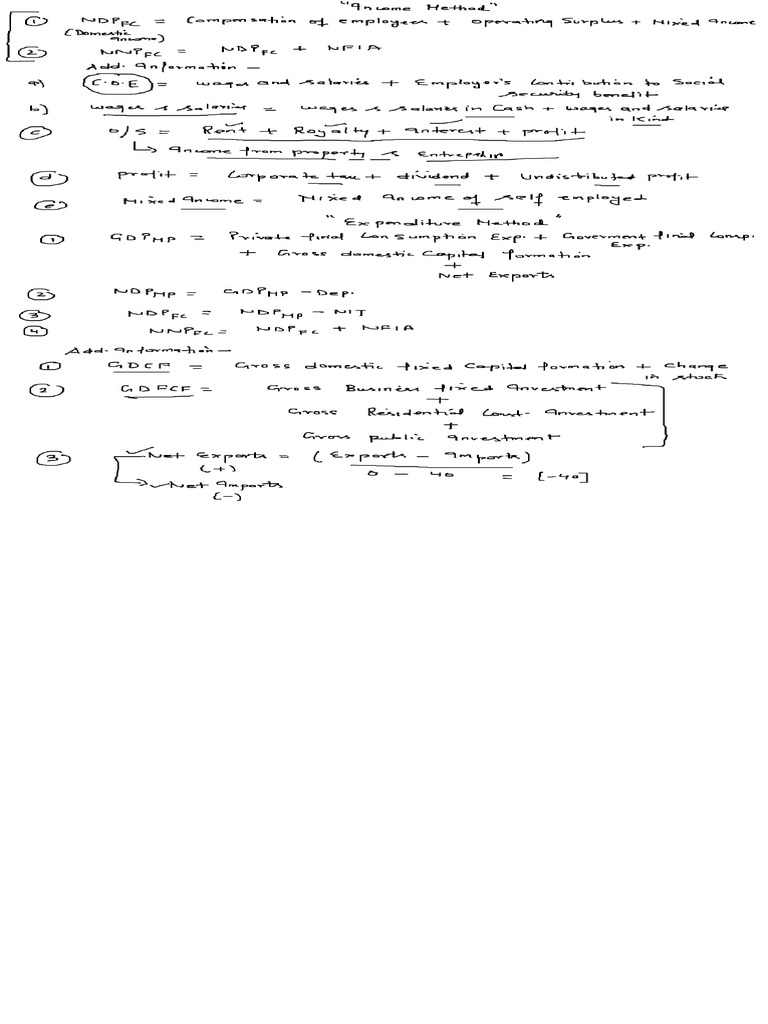 "Income Method"
① NDP FC = Compensation of employees + Operating Surplus + Mixed Income
(Domestic Income)
② NNP FC = NDP FC + NFIA
Add. Information –
a) C.O.E = wages and salaries + Employer's Contribution to Social
security benefit
b) wages & salaries = wages & salaries in Cash + wages and salaries
in Kind
ⓒ O/S = Rent + Royalty + Interest + profit
↳ Income from property & Entrepship
ⓓ profit = Corporate tax + dividend + Undistributed profit
ⓔ Mixed Income = Mixed Income of self employed
"Expenditure Method"
① GDP MP = Private final Consumption Exp. + Goverment final Consp.
Exp.
+ Gross domestic Capital formation
+
Net Exports
② NDP MP = GDP MP – Dep.
③ NDP FC = NDP MP – NIT
④ NNP FC = NDP FC + NFIA
Add. Information –
① GDCF = Gross domestic fixed Capital formation + Change
in stock
② GDFCF = Gross Business fixed Investment
+
Gross Residential Const. Investment
+
Gross public Investment
③ Net Exports = (Exports – Imports)
(+) 0 – 40 = [-40]
Net Imports
(-)